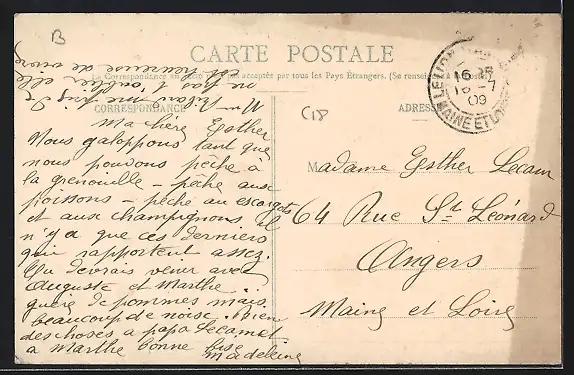 B
CARTE POSTALE
La Correspondance au recto n'est pas acceptée par tous les Pays Étrangers. (Se renseigner
CORRESPONDANCE
ADRESSE
C18
LE LION
16
16 - 7
09
MAINE ET LOIRE
Ma chère Esther
Nous galoppons tant que
nous pouvons pêche à
la grenouille - pêche aux
poissons - pêche au escargots
et aux champignons il
n'y a que ces derniers
qui rapportent assez.
Tu devrais venir avec
Auguste et Marthe
guère de pommes mais
beaucoup de noise. bien
des choses a papa Lecamet
a Marthe bonne bise
Madeleine
ne pas t'oublier elle
heureuse de
Madame Esther Lecam
64 Rue St Léonard
Angers
Maine et Loire